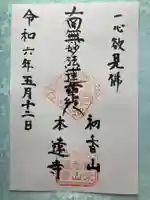 一心欲見佛
南無妙法蓮華経
初音山
本遠寺
令和六年五月十二日